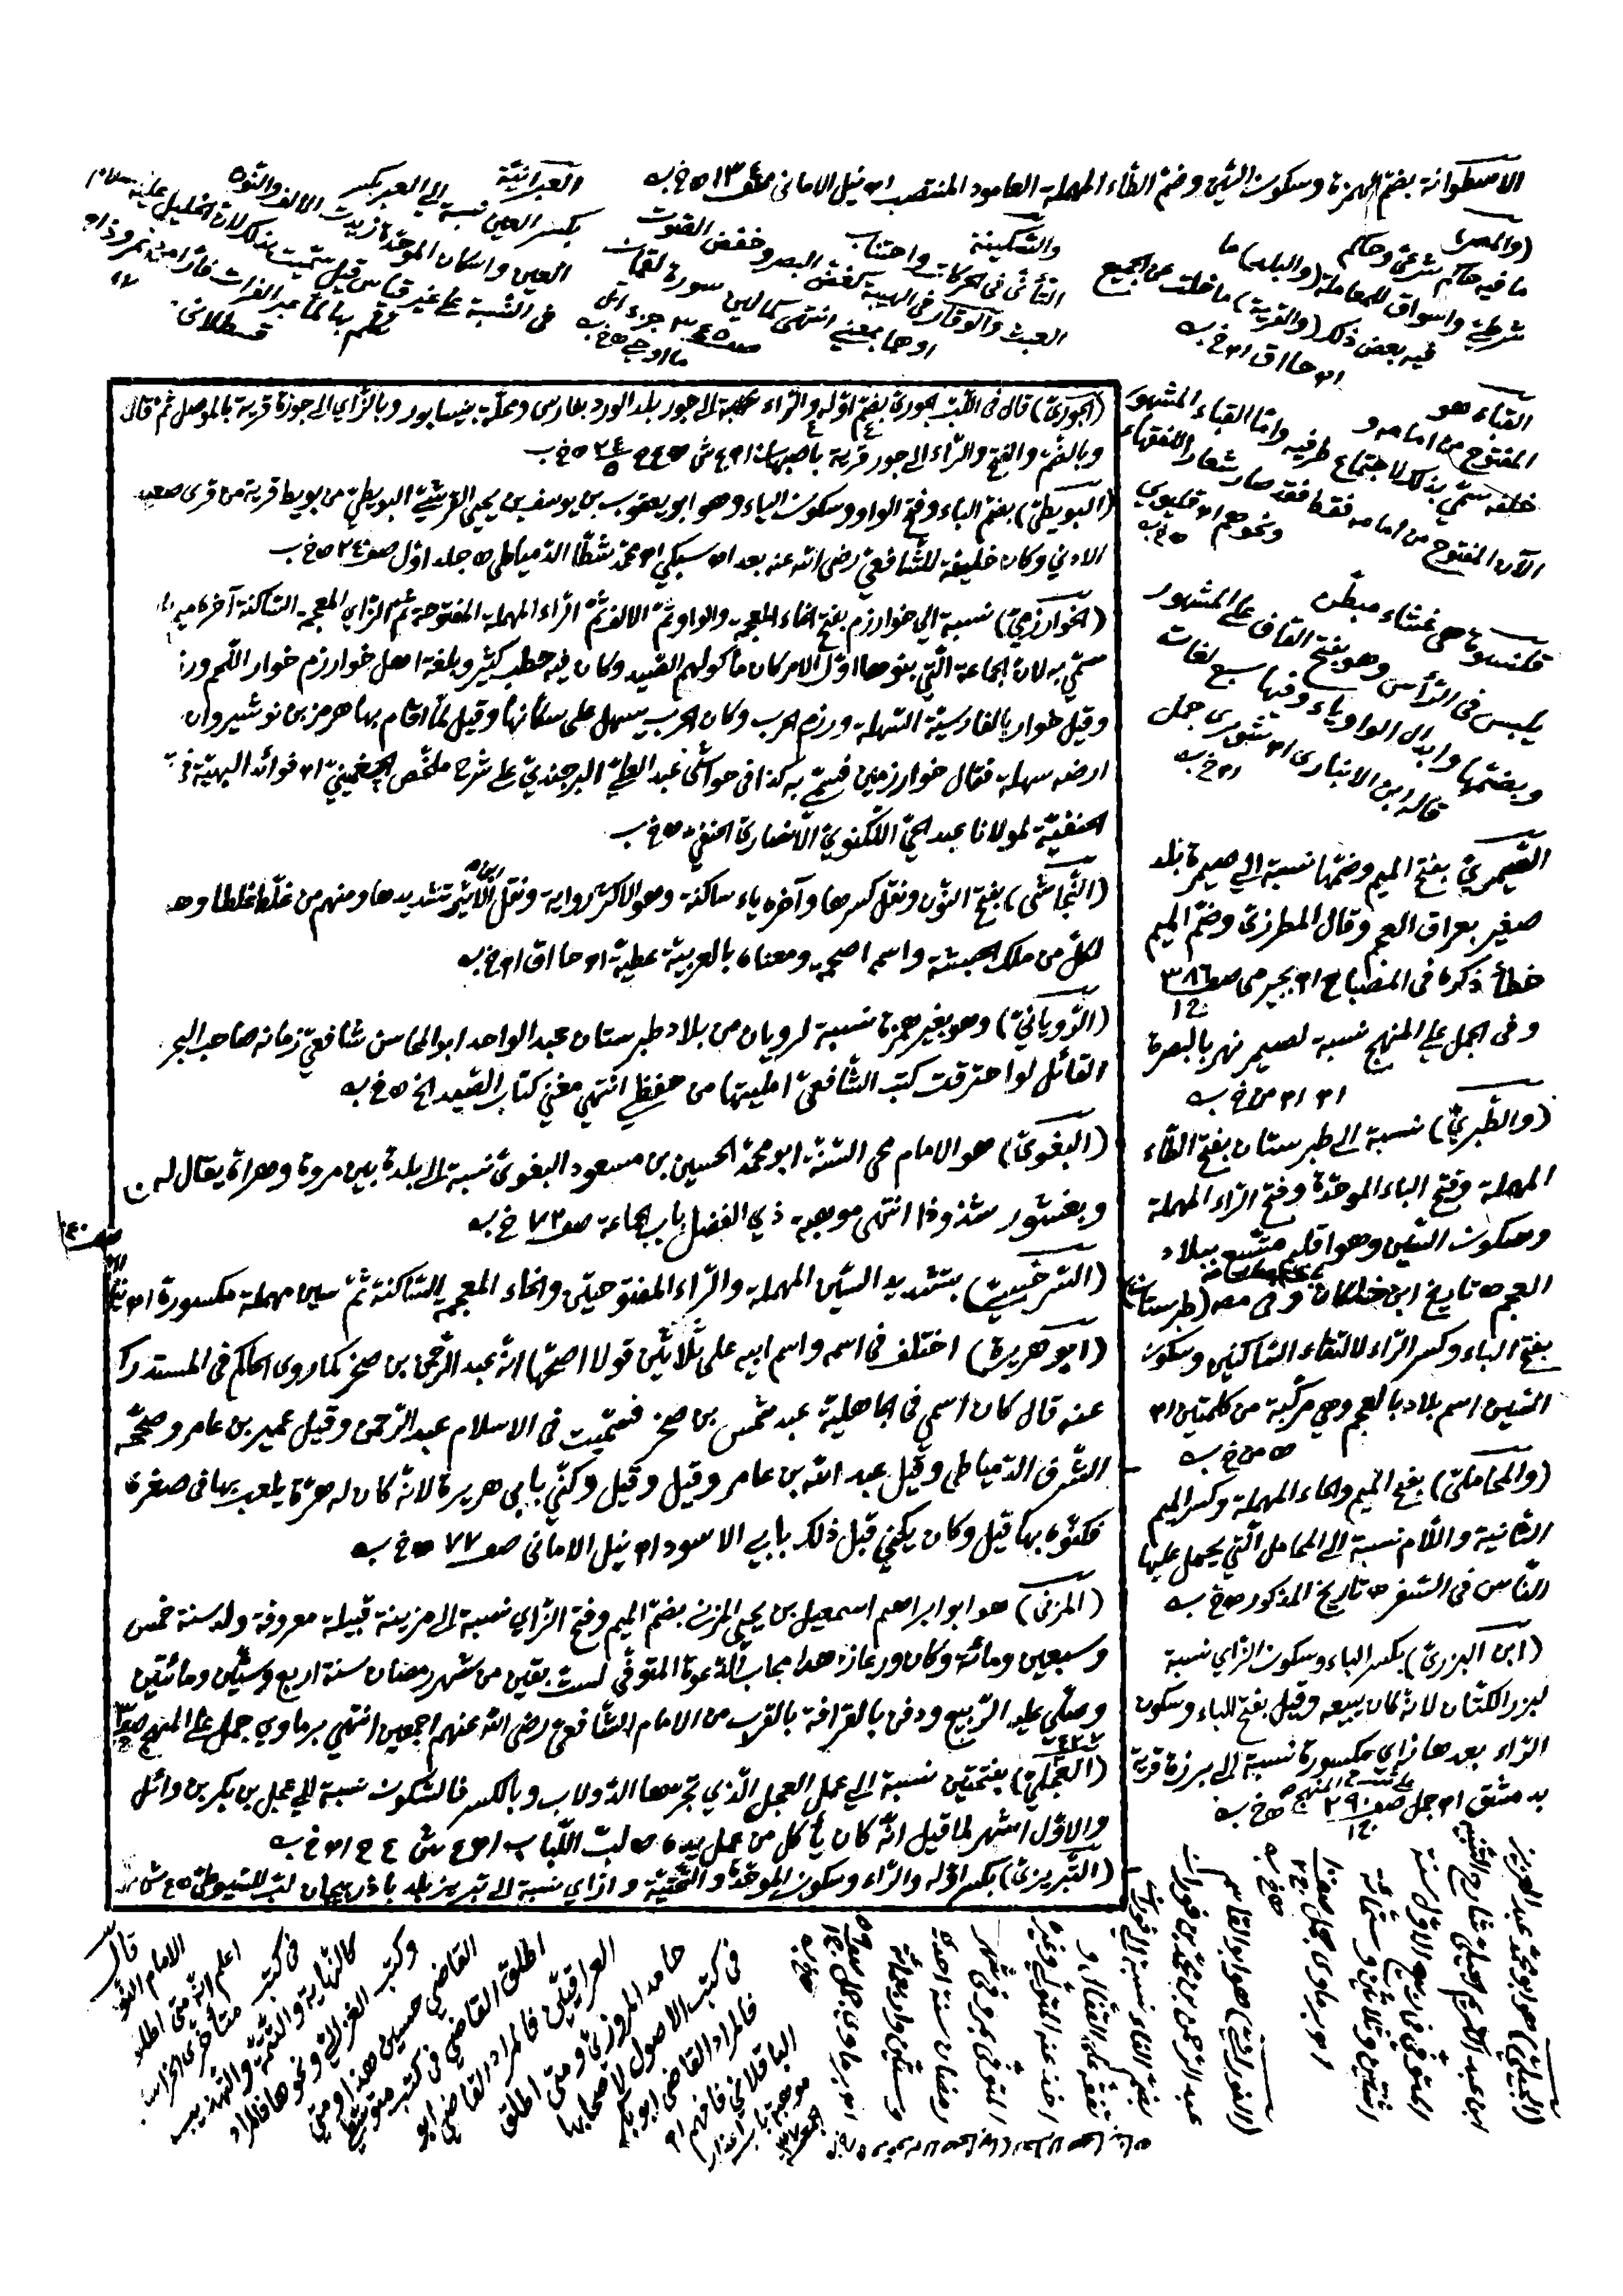 الاسطوانة بضمّ الهمزة وسكون السّين وضمّ الطّاء المهملة العامود المنتصب اه نيل الاماني
(والمصر)
ما فيه حاكم شرعيّ وحاكم
شرطيّ واسواق للمعاملة (والبلد) ما
فيه بعض ذلك (والقرية) ما خلت عن الجميع
والسّكينة
التأنّي في الحركات واجتناب
العبث والوقار في الهيبة كغضّ البصر وخفض الصّوت
او هما بمعنى انتهى
العبرانيّة
بكسر العين نسبة الى العبر بكسر
العين واسكان الموحّدة زيدت الالف والنّون
في النّسبة على غير قياس قيل سمّيت بذلك لانّ الخليل عليه السلام
تكلّم بها لمّا عبر الفرات فارّا من نمروذ اه
قسطلاني
القباء هو
المفتوح من امامه و
خلفه سمّي بذلك لاجتماع طرفيه وامّا القباء المشهور
الآن المفتوح من امامه فقط فقد صار شعار الفقهاء
ونحوهم اه قليوبي
قلنسوة هي غشاء مبطّن
يلبس في الرّأس وهو بفتح القاف على المشهور
وبضمّها وابدال الواو ياء وفيها سبع لغات
قاله ابن الانباري اه جمل
الصّيمريّ بفتح الميم وضمّها نسبة الى صيمر بلد
صغير بعراق العجم وقال المطرزيّ وضمّ الميم
خطأ ذكره في المصباح اه بجيرمي صف ٣٨٦
وفي الجمل على المنهج نسبة لصيمر نهر بالبصرة
(والطّبريّ) نسبة الى طبرستان بفتح الطّاء
المهملة وفتح الباء الموحّدة وفتح الرّاء المهملة
وسكون السّين وهو اقليم متّسع ببلاد
العجم ه تاريخ ابن خلكان (طبرستان)
بفتح الباء وكسر الرّاء لالتقاء السّاكنين وسكون
السّين اسم بلاد بالعجم وهي مركّبة من كلمتين اه
(والمحامليّ) بفتح الميم والحاء المهملة وكسر الميم
الثّانية واللّام نسبة الى المحامل الّتي يحمل عليها
النّاس في السّفر ه تاريخ المذكور
(ابن البزريّ) بكسر الباء وسكون الزّاي نسبة
لبزر الكتّان لانّه كان يبيعه وقيل بفتح الباء وسكون
الرّاء بعدها زاي مكسورة نسبة الى برزة قرية
بدمشق اه جمل على المنهج صف ٢٩٠
(الجوريّ) قال في اللّبّ الجوريّ بضمّ اوّله والرّاء نسبة الى جور بلد الورد بفارس ومحلّة بنيسابور وبالزّاي الى جوزة قرية بالموصل ثمّ قال
وبالضّمّ والفتح والرّاء الى جور قرية باصبهان
(البويطيّ) بضمّ الباء وفتح الواو وسكون الياء وهو ابو يعقوب بن يوسف بن يحيى القرشيّ البويطيّ من بويط قرية من قرى صعيد
الادني وكان خليفة للشّافعيّ رضي الله عنه بعده سبكي اه محمّد شطّا الدّمياطي ه جلد اوّل صف ٢٤
(الخوارزميّ) نسبة الى خوارزم بفتح الخاء المعجمة والواو ثمّ الالف ثمّ الرّاء المهملة المفتوحة ثمّ الزّاي المعجمة السّاكنة آخره ميم
سمّي به لانّ الجماعة الّتي بنوها اوّل الامر كان مأكولهم الصّيد وكان فيه حطب كثير وبلغة اهل خوارزم خوار اللّحم ورزم
وقيل خوار بالفارسيّة السّهلة ورزم الحرب وكان الحرب يسهل على سكّانها وقيل لمّا اقام بها هرمز بن نوشيروان
ارضه سهلة فقال خوارزمين فسمّي به كذا في حواشي عبد العليّ البرجنديّ على شرح ملخّص الچغمينيّ اه فوائد البهيّة في
الحنفيّة لمولانا عبد الحيّ اللّكنويّ الانصاريّ الحنفيّ
(النّجاشي) بفتح النّون ونقل كسرها وآخره ياء ساكنة وهو الاكثر رواية ونقل ابن الاثير تشديدها ومنهم من غلّطه
لكلّ من ملك الحبشة واسمه اصحمة ومعناه بالعربيّة عطيّة اه
(الرّويانيّ) وهو بغير همزة نسبة لرويان من بلاد طبرستان عبد الواحد ابو المحاسن شافعيّ زمانه صاحب البحر
القائل لو احترقت كتب الشّافعيّ امليتها من حفظي انتهى مغني كتاب الصّيد
(البغويّ) هو الامام محي السّنّة ابو محمّد الحسين بن مسعود البغويّ نسبة الى بلدة بين مروة وهراة يقال له
وبغشور شذوذا انتهى موهبة ذي الفضل باب الجماعة صف ٧٣
(السّرخسيّ) بتشديد السّين المهملة والرّاء المفتوحتين والخاء المعجمة السّاكنة ثمّ سين مهملة مكسورة اه
(ابو هريرة) اختلف في اسمه واسم ابيه على ثلاثين قولا اصحّها انّه عبد الرّحمن بن صخر كما روى الحاكم في المستدرك
عنه قال كان اسمي في الجاهليّة عبد شمس بن صخر فسمّيت في الاسلام عبد الرّحمن وقيل عمير بن عامر وصحّحه
الشّرف الدّمياطي وقيل عبد الله بن عامر وقيل وقيل وكنّي بابي هريرة لانّه كان له هرّة يلعب بها في صغره
فكنّوه بها قيل وكان يكنى قبل ذلك بابي الاسود اه نيل الاماني صف ٧٧
(المزنيّ) هو ابو ابراهيم اسمعيل بن يحيى المزنيّ بضمّ الميم وفتح الزّاي نسبة الى مزينة قبيلة معروفة ولد سنة خمس
وسبعين ومائة وكان ورعا زاهدا مجاب الدّعوة المتوفّي لستّ بقين من شهر رمضان سنة اربع وستّين ومائتين
وصلّي عليه الرّبيع ودفن بالقرافة بالقرب من الامام الشّافعيّ رضى الله عنهم اجمعين انتهى برماوي جمل على المنهج
(العجليّ) بفتحتين نسبة الى عمل العجل الّذي تجرّها الدّولاب وبالكسر فالسّكون نسبة الى عجل بن بكر بن وائل
والاوّل اشهر لما قيل انّه كان يأكل من عمل يده ه لبّ اللّباب
(التّبريزيّ) بكسر اوّله والرّاء وسكون الموحّدة والتّحتيّة وزاي نسبة الى تبريز بلد باذربيجان لبّ للسّيوطيّ
(الجيليّ) هو ابو محمّد عبد العزيز
ابن عبد الكريم الجيليّ شارح التّنبيه
المتوفّي في ربيع الاوّل سنة
اثنتين وثلاثين وستمائة
اه برماوي جمل
(الفورانيّ) هو ابو القاسم
عبد الرّحمن بن محمّد بن فوران
بضمّ الفاء نسبة الى فوران
تفقّه على القفّال و
اخذ عنه المتولّي وغيره
المتوفّي بمرو في شهر
رمضان سنة احدى
وستّين واربعمائة
اه برماوي جمل
قال
الامام النّووي
اعلم انّه متى اطلق
في كتب متأخّري الخراسانيّين
كالنّهاية والتّتمّة والتّهذيب
وكتب الغزاليّ ونحوها فالمراد
القاضي حسين هذا ومتى
اطلق القاضي في كتب متوسّطي
العراقيّين فالمراد القاضي ابو
حامد المروزي ومتى اطلق
في كتب الاصول لاصحابنا
فالمراد القاضي ابو بكر
الباقلاني فافهم اه
موهبة باب اعذار
الجمعة ٣٧